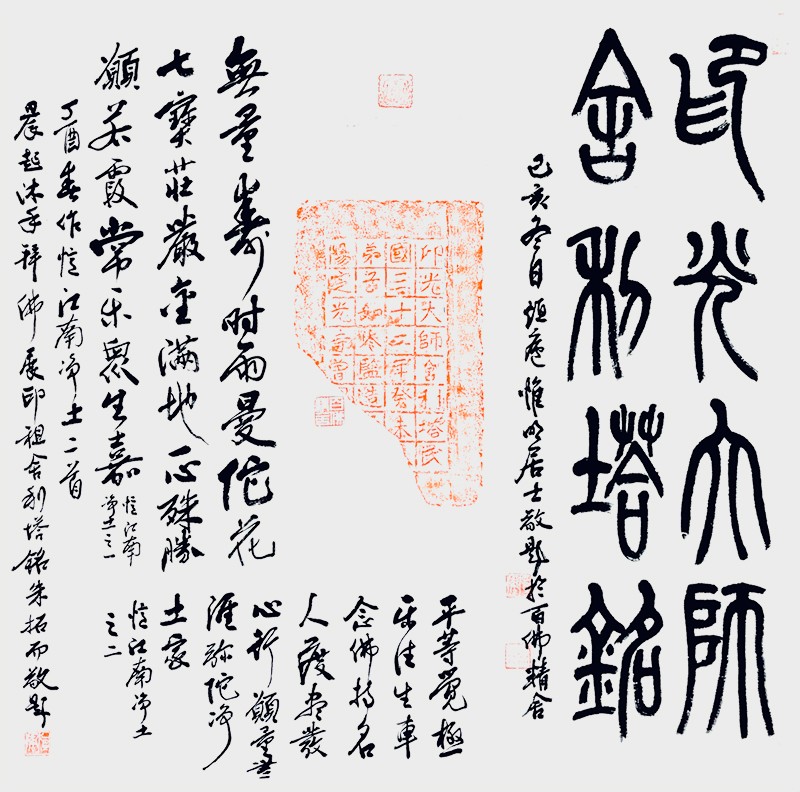 印光大師
舍利塔銘
己亥冬日 頑庵 惟明居士敬題於百佛精舍
印光大師舍利塔民
國三十二年癸未
弟子如岑監造
無量壽時雨曼陀花
七寶莊嚴金滿地心殊勝
願若霞常樂眾生嘉
憶江南
淨土之一
平等覺極
樂往生車
念佛持名
人廣奉發
心行願無量
涯弥陀淨
土家
憶江南淨土
之二
丁酉春作憶江南淨土二首
晨起沐手拜佛展印祖舍利塔銘朱拓而敬題